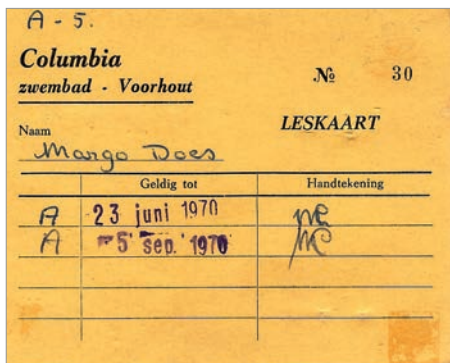 A - 5.
Columbia
zwembad - Voorhout
№ 30
LESKAART
Naam
Margo Does
Geldig tot Handtekening
A 23 juni 1970
A 5 sep. 1970